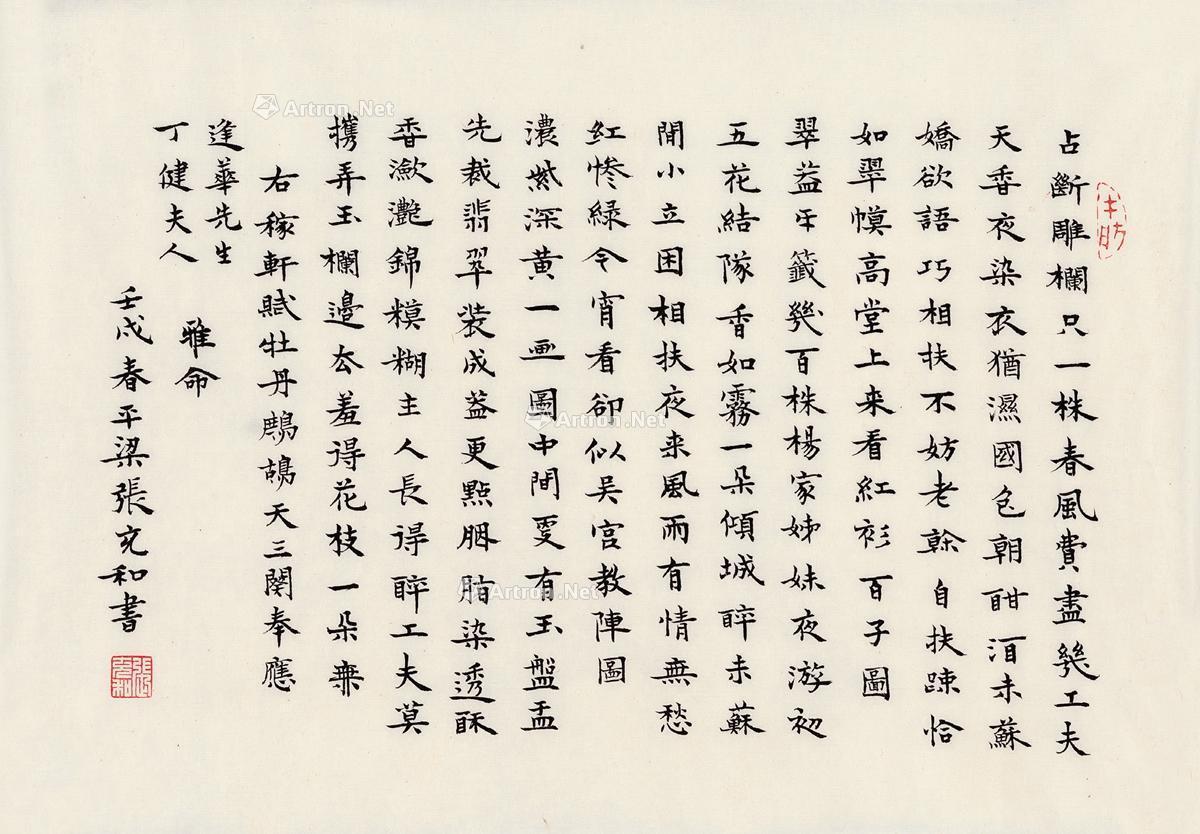 占斷雕欄只一株春風費盡幾工夫
天香夜染衣猶濕國色朝酣酒未蘇
嬌欲語巧相扶不妨老榦自扶疎恰
如翠幙高堂上来看紅衫百子圖
翠蓋牙籤幾百株楊家姊妹夜游初
五花結隊香如霧一朵傾城醉未蘇
閒小立困相扶夜来風雨有情無愁
紅慘綠今宵看卻似吳宮教陣圖
濃紫深黃一画圖中間更有玉盤盂
先裁翡翠裝成蓋更點胭脂染透酥
香瀲灧錦糢糊主人長得醉工夫莫
攜弄玉欄邊去羞得花枝一朵無
右稼軒賦牡丹鷓鴣天三闋奉應
逢華先生
丁健夫人
雅命
壬戌春平梁張充和書
張充和
Artron.Net
Artron.Net
Artron.Net